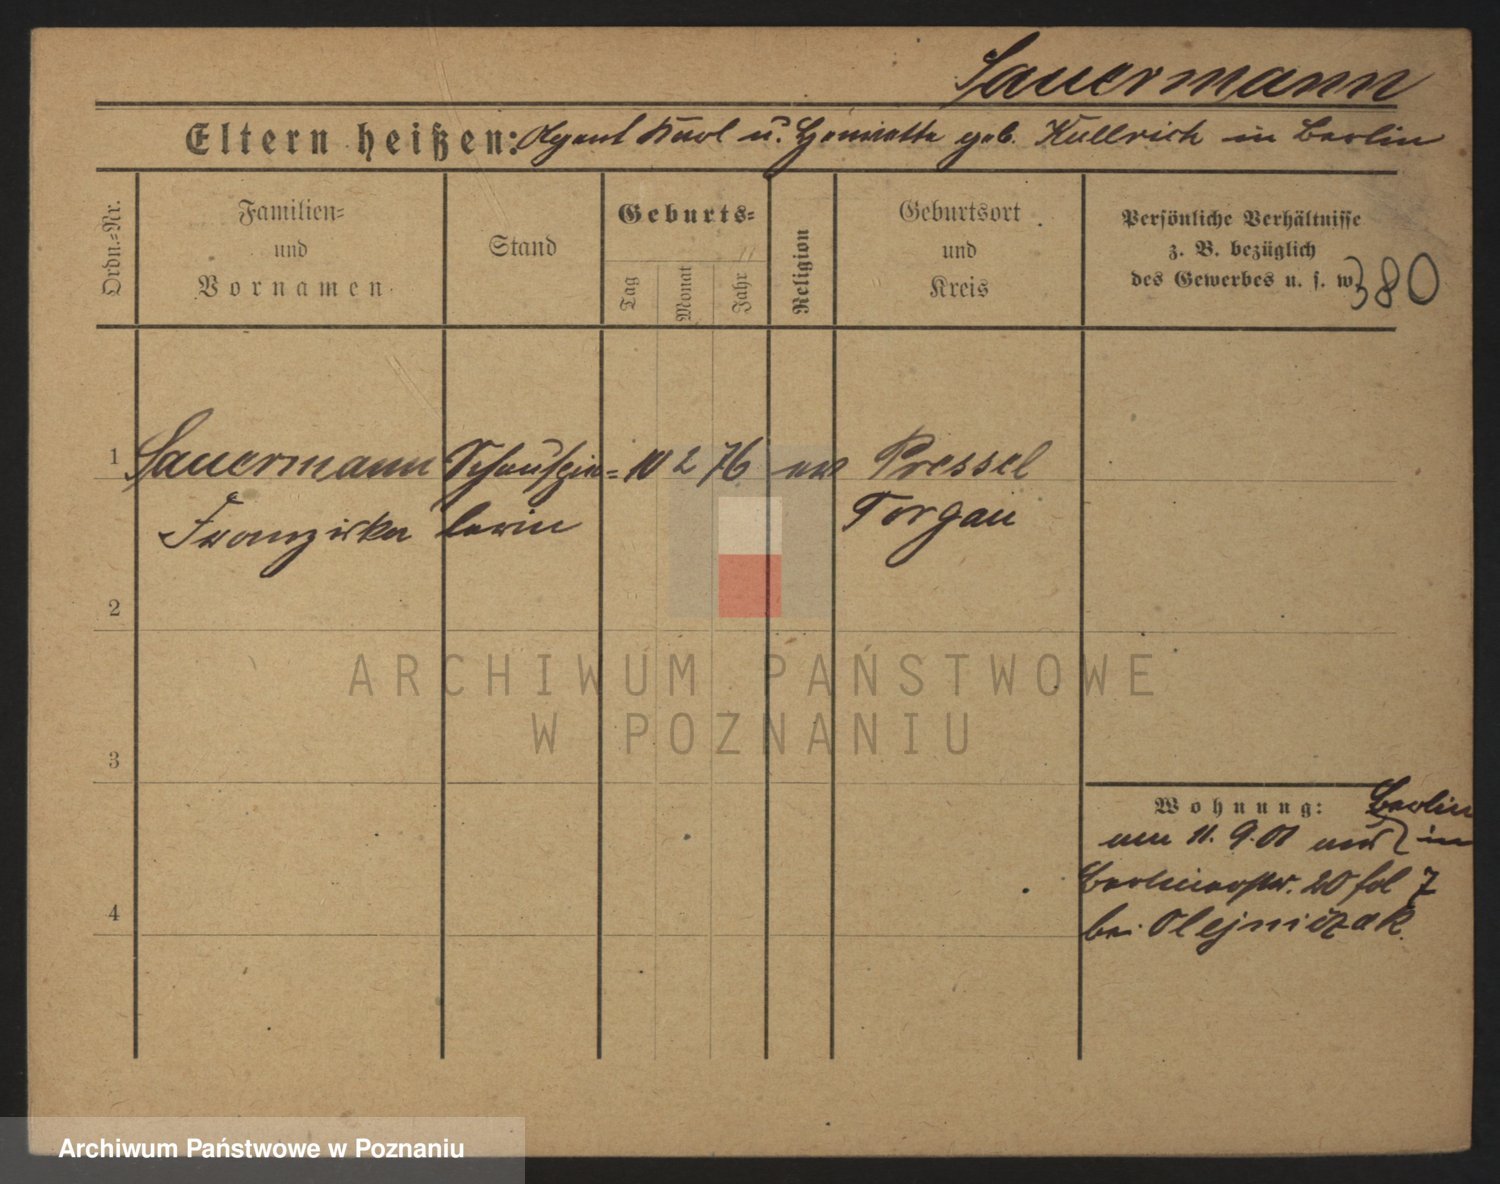 Sauermann
Eltern heißen: Agent Karl u. Henriette geb. Kullrich in Berlin
Ordn.-Nr.
Familien-
und
Vornamen
Stand
Geburts-
Tag
Monat
Jahr
Religion
Geburtsort
und
Kreis
Persönliche Verhältnisse
z. B. bezüglich
des Gewerbes u. s. w.
380
1 Sauermann Schauspie- 10 2 76 ev Pressel
Franziska lerin Torgau
2
ARCHIWUM PAŃSTWOWE
W POZNANIU
3
Wohnung: Berlin
am 11. 9. 01 in
Berlinerstr. 20 bei
bei Olejniczak
4
Archiwum Państwowe w Poznaniu